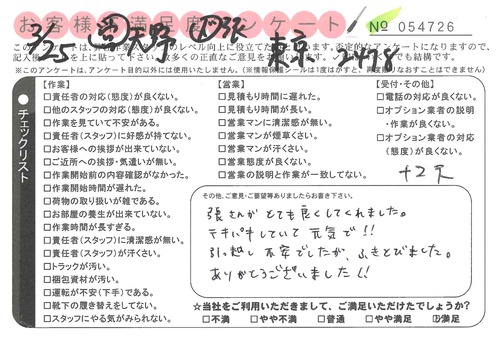 お客様満足度アンケート
No 054726
3/25 営 天野 作 張 東京 2478
※このアンケートは、アンケート目的以外には使用いたしません。(情報保護シールは1度はがすと、再度貼りなおすことはできません)
チェックリスト
【作業】
□責任者の対応(態度)が良くない。
□他のスタッフの対応(態度)が良くない。
□作業を見ていて不安がある。
□責任者(スタッフ)に好感が持てない。
□お客様への挨拶が出来ていない。
□ご近所への挨拶・気遣いが無い。
□作業開始前の内容確認がなかった。
□作業開始時間が遅れた。
□荷物の取り扱いが雑である。
□お部屋の養生が出来ていない。
□作業時間が長すぎる。
□責任者(スタッフ)に清潔感が無い。
□責任者(スタッフ)が汗くさい。
□トラックが汚い。
□梱包資材が汚い。
□運転が不安(下手)である。
□靴下の履き替えをしてない。
□スタッフにやる気がみられない。
【営業】
□見積もり時間に遅れた。
□見積もり時間が長い。
□営業マンに清潔感が無い。
□営業マンが煙草くさい。
□営業マンが汗くさい。
□営業態度が良くない。
□営業の説明と作業が一致してない。
【受付・その他】
□電話の対応が良くない。
□オプション業者の説明
・作業が良くない。
□オプション業者の対応
(態度)が良くない。
その他、ご意見・ご要望等ありましたらお書き下さい。
張さんがとても良くしてくれました。
テキパキしていて元気で!!
引っ越し不安でしたが、ふきとびました。
ありがとうございました!!
☆当社をご利用いただきまして、ご満足いただけたでしょうか?
□不満 □やや不満 □普通 □やや満足 ☑満足